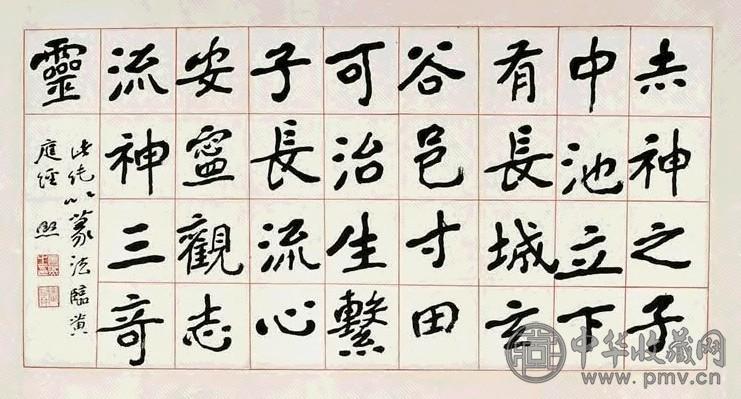 赤神之子
中池立下
有長城玄
谷邑寸田
可治生繫
子長流心
安寧觀志
流神三奇
靈
此純以篆法臨黃
庭經 熙
中华收藏网
www.pmv.cn